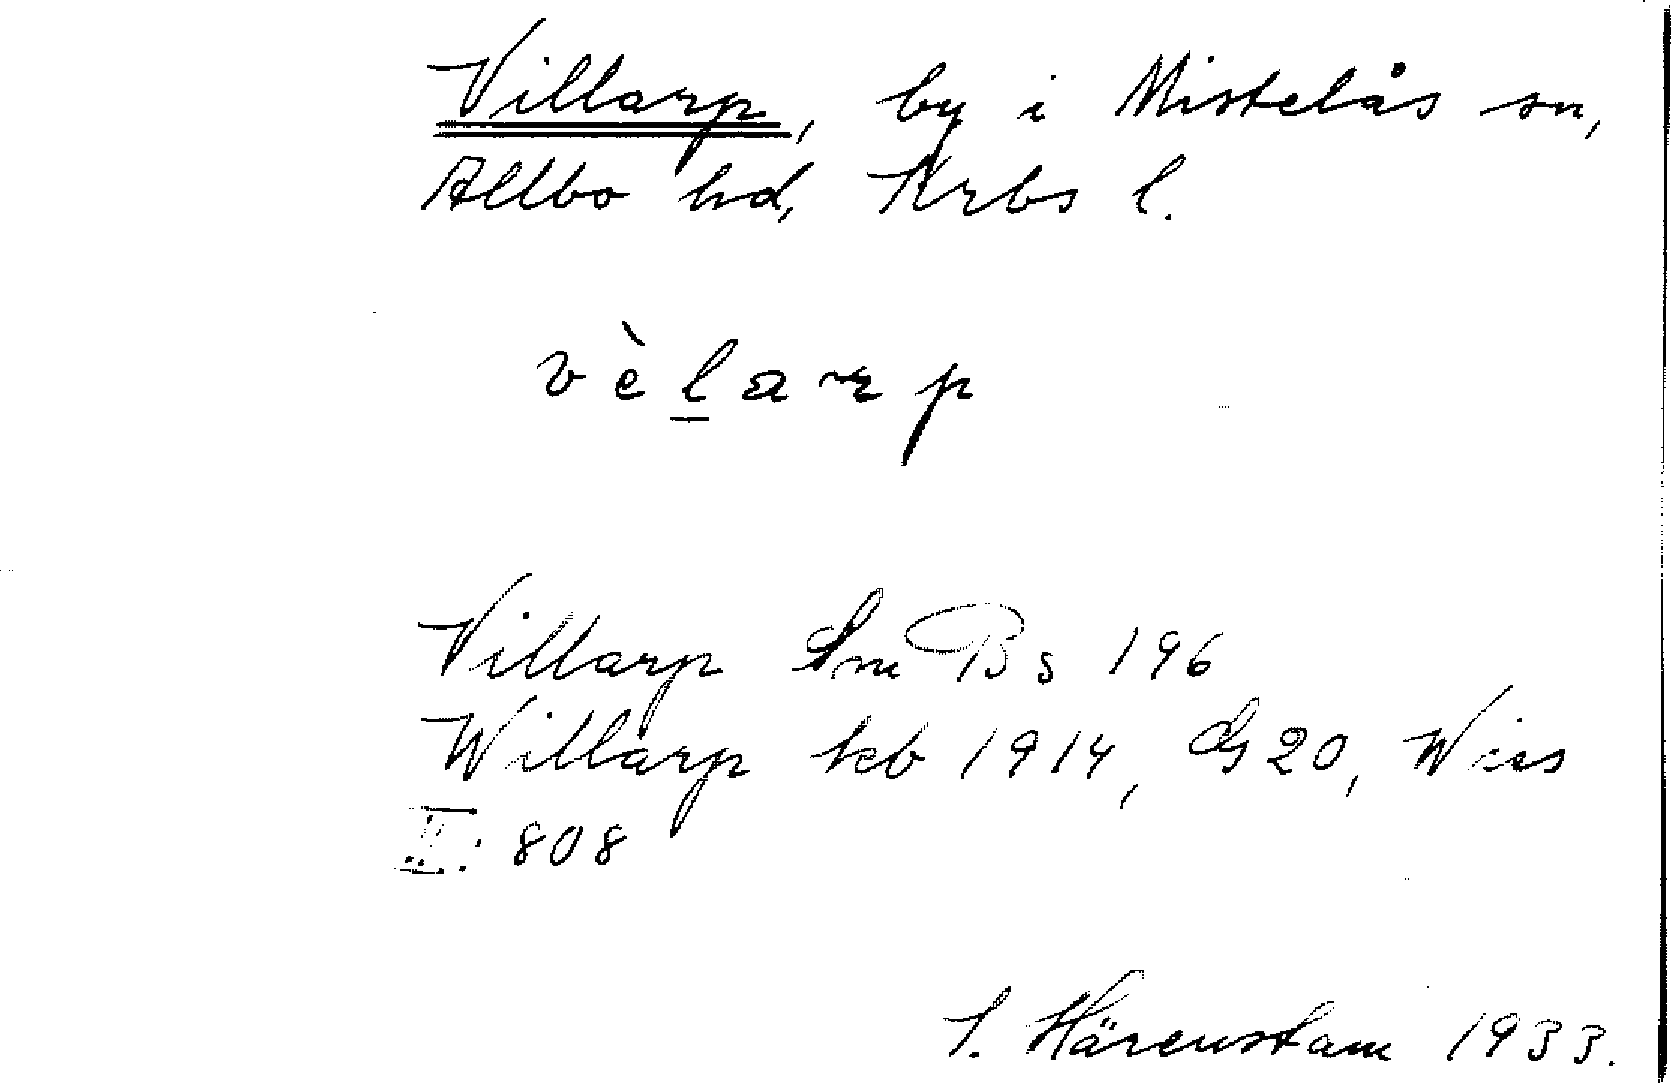 Villarp, by i Mistelås sn,
Allbo hd, Krbs l.
vèl̲arp
Villarp Sm Bs 196
Willarp kb 1914, GS 20, Wies
II: 808
S. Härenstam 1933.